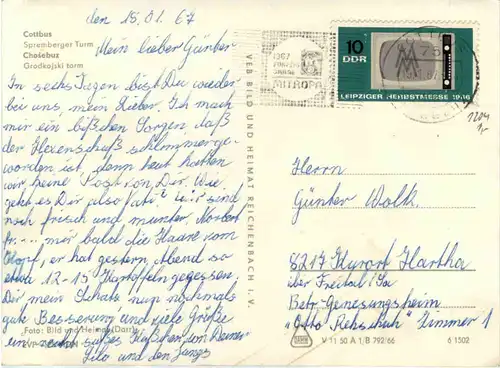 den 15.01.67
Cottbus
Spremberger Turm
Chośebuz
Grodkojski torm
Mein lieber Günter
In sechs Tagen bist Du wieder
bei uns, mein Lieber. Ich mach
mir ein bißchen Sorgen, daß
der Hexenschuß schlimmerge-
worden ist, denn heut hatten
wir keine Post von Dir. Wie
geht es Dir also Vati? Wir sind
noch frisch und munter. Norbert
fr... mir bald die Haare vom
Kopf, er hat gestern Abend so
etwa 12-15 Kartoffeln gegessen.
Dir mein Schatz nun nochmals
gute Besserung und viele Grüße
„Foto: Bild und Heimat (Darr)
ein süßes Küßchen von Deiner
Lilo und den Jungs
VEB BILD UND HEIMAT REICHENBACH I. V.
1967
MITROPA
10
DDR
LEIPZIGER HERBSTMESSE 1966
1204
Herrn
Günter Wolk
8217 Kurort Hartha
über Freital/Sa
Betr. Genesungsheim
"Otto Rehschuh" Zimmer 1
V 11 50 A 1 B 792/66
6 1502